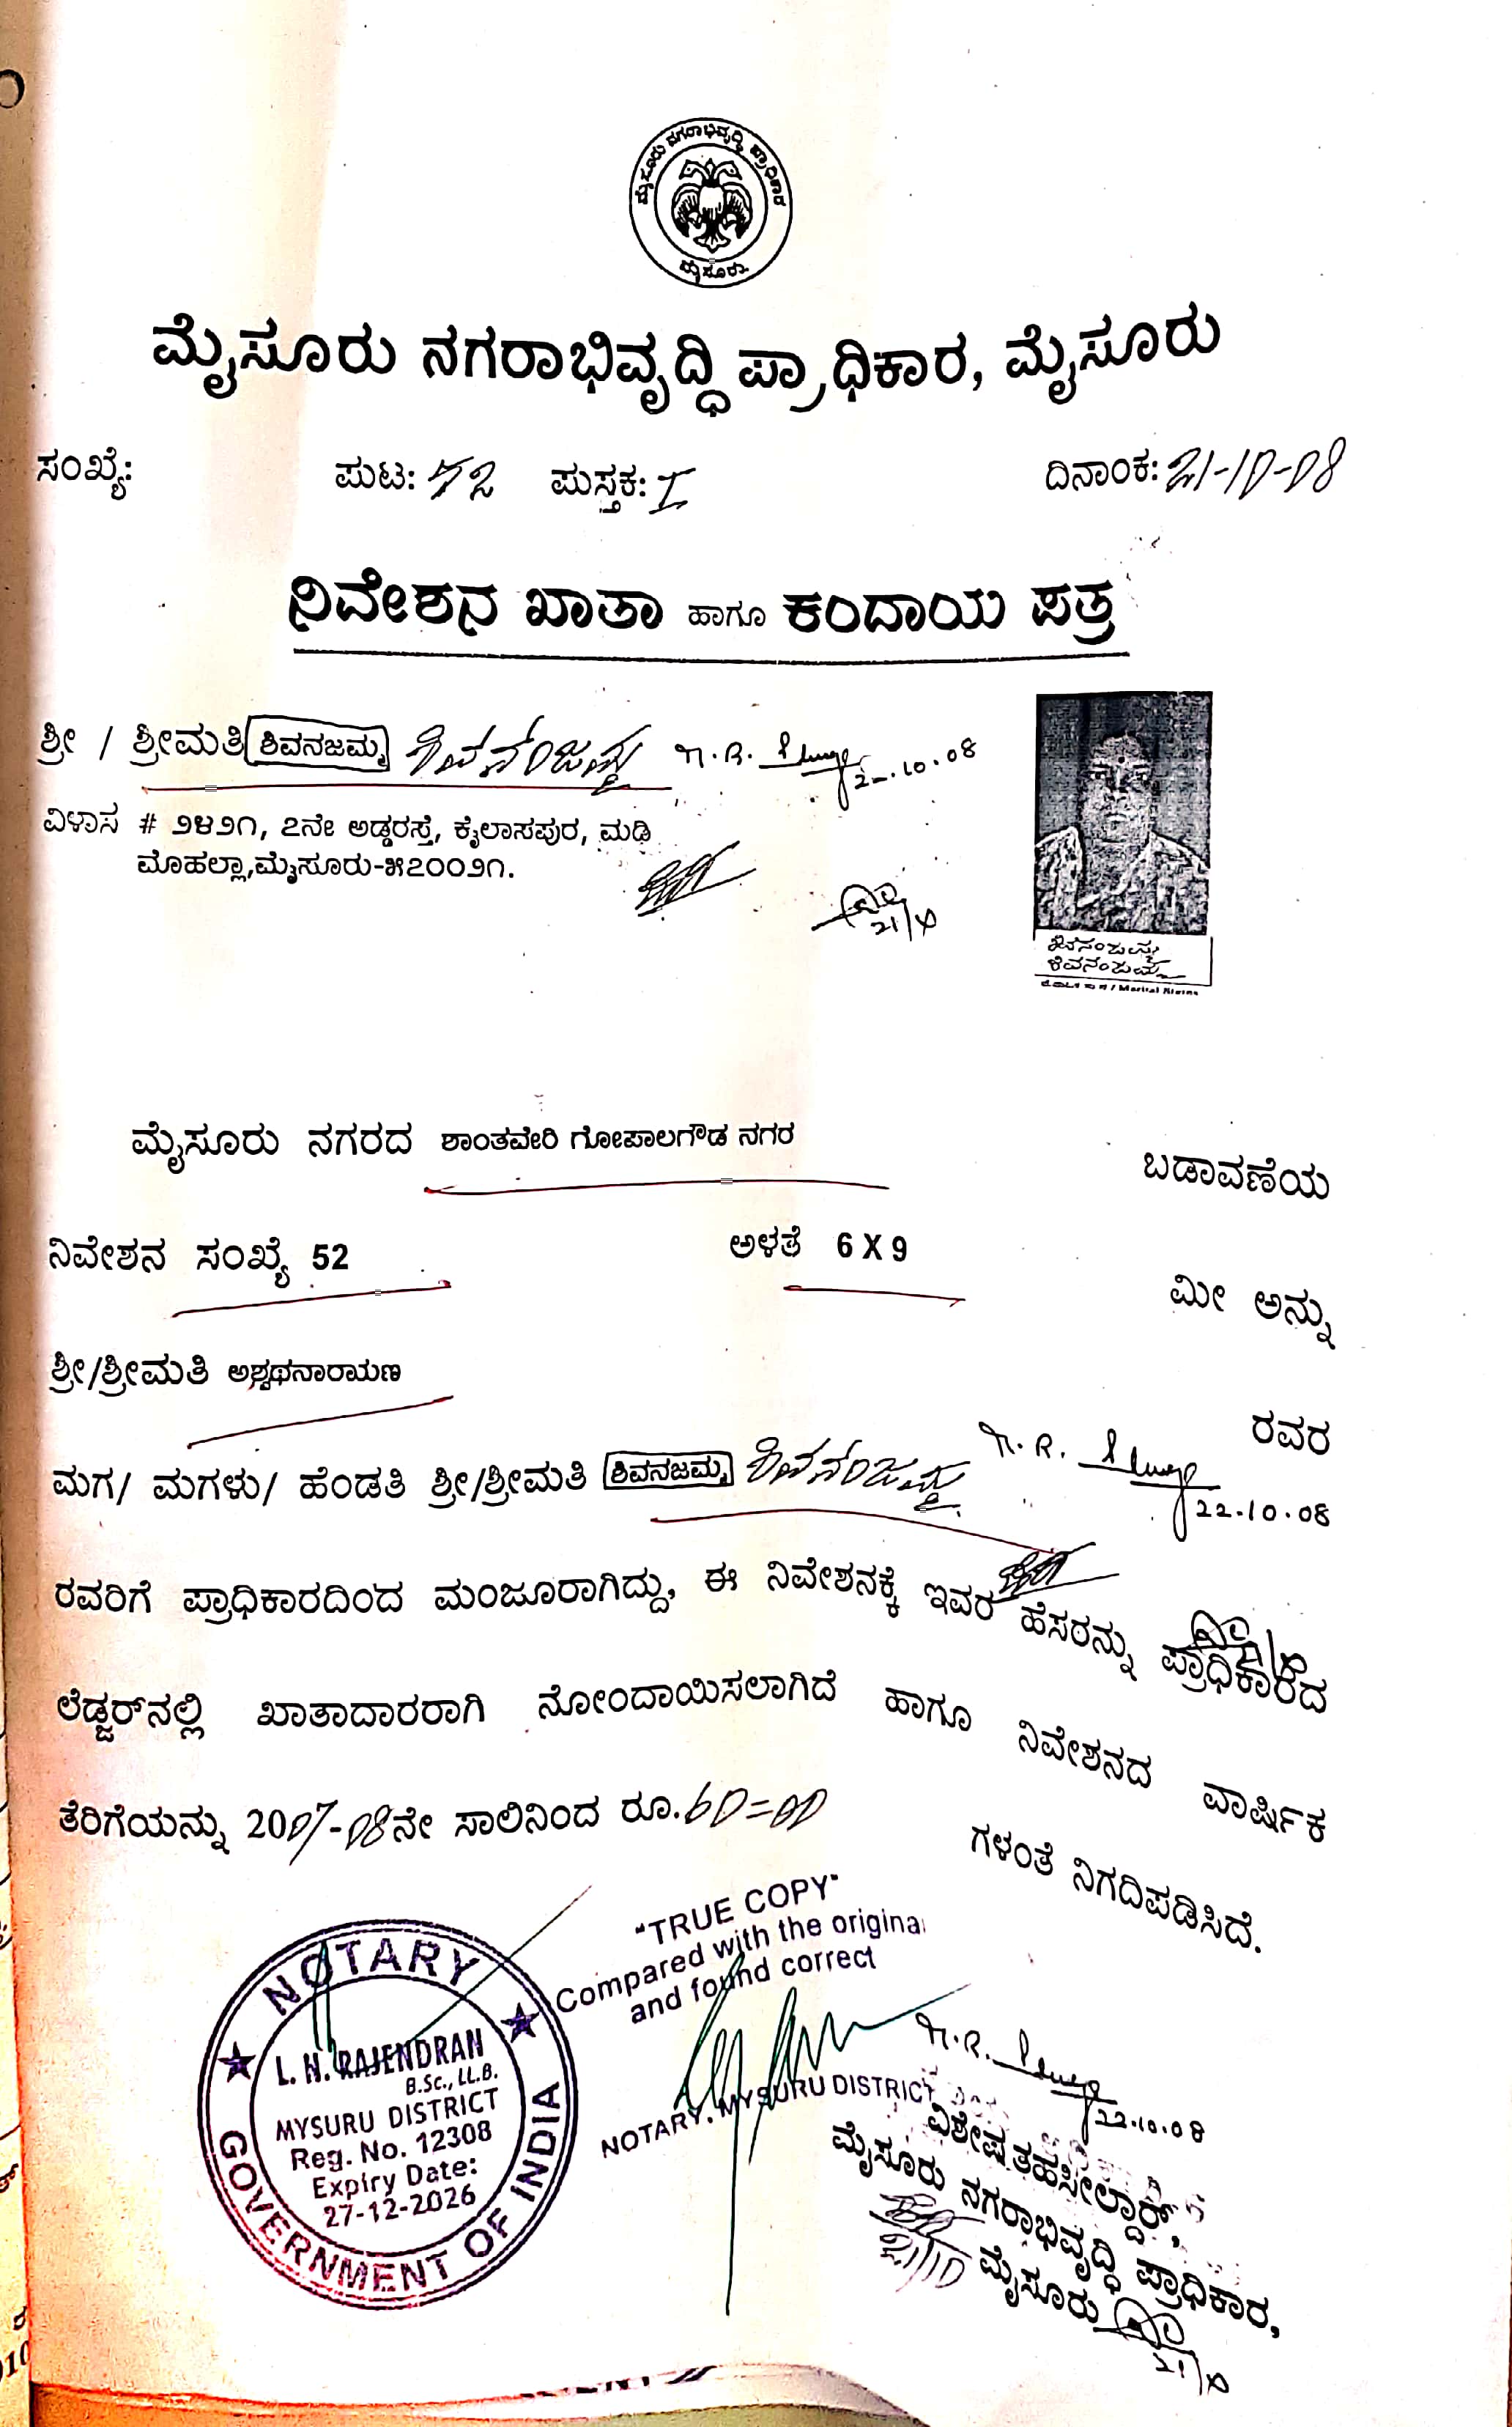 ಮೈಸೂರು ನಗರಾಭಿವೃದ್ಧಿ ಪ್ರಾಧಿಕಾರ
ಮೈಸೂರು
ಮೈಸೂರು ನಗರಾಭಿವೃದ್ಧಿ ಪ್ರಾಧಿಕಾರ, ಮೈಸೂರು
ಸಂಖ್ಯೆ: ಪುಟ: 72 ಪುಸ್ತಕ: I ದಿನಾಂಕ: 21-10-08
ನಿವೇಶನ ಖಾತಾ ಹಾಗೂ ಕಂದಾಯ ಪತ್ರ
ಶ್ರೀ / ಶ್ರೀಮತಿ ಶಿವನಜಮ್ಮ ಶಿವನಂಜಮ್ಮ 22.10.08
ವಿಳಾಸ # ೨೪೨೧, ೭ನೇ ಅಡ್ಡರಸ್ತೆ, ಕೈಲಾಸಪುರ, ಮಡಿ
ಮೊಹಲ್ಲಾ,ಮೈಸೂರು-೫೭೦೦೨೧.
ಮೈಸೂರು ನಗರದ ಶಾಂತವೇರಿ ಗೋಪಾಲಗೌಡ ನಗರ ಬಡಾವಣೆಯ
ನಿವೇಶನ ಸಂಖ್ಯೆ 52 ಅಳತೆ 6 X 9 ಮೀ ಅನ್ನು
ಶ್ರೀ/ಶ್ರೀಮತಿ ಅಶ್ವಥನಾರಾಯಣ ರವರ
ಮಗ/ ಮಗಳು/ ಹೆಂಡತಿ ಶ್ರೀ/ಶ್ರೀಮತಿ ಶಿವನಜಮ್ಮ ಶಿವನಂಜಮ್ಮ 22.10.08
ರವರಿಗೆ ಪ್ರಾಧಿಕಾರದಿಂದ ಮಂಜೂರಾಗಿದ್ದು, ಈ ನಿವೇಶನಕ್ಕೆ ಇವರ ಹೆಸರನ್ನು ಪ್ರಾಧಿಕಾರದ
ಲೆಡ್ಜರ್‌ನಲ್ಲಿ ಖಾತಾದಾರರಾಗಿ ನೋಂದಾಯಿಸಲಾಗಿದೆ ಹಾಗೂ ನಿವೇಶನದ ವಾರ್ಷಿಕ
ತೆರಿಗೆಯನ್ನು 2007-08ನೇ ಸಾಲಿನಿಂದ ರೂ.60=00 ಗಳಂತೆ ನಿಗದಿಪಡಿಸಿದೆ.
"TRUE COPY"
Compared with the original
and found correct
NOTARY, MYSURU DISTRICT
NOTARY
L. N. RAJENDRAN
B.Sc., LL.B.
MYSURU DISTRICT
Reg. No. 12308
Expiry Date:
27-12-2026
GOVERNMENT OF INDIA
22.10.08
ವಿಶೇಷ ತಹಸೀಲ್ದಾರ್,
ಮೈಸೂರು ನಗರಾಭಿವೃದ್ಧಿ ಪ್ರಾಧಿಕಾರ,
ಮೈಸೂರು
21/10